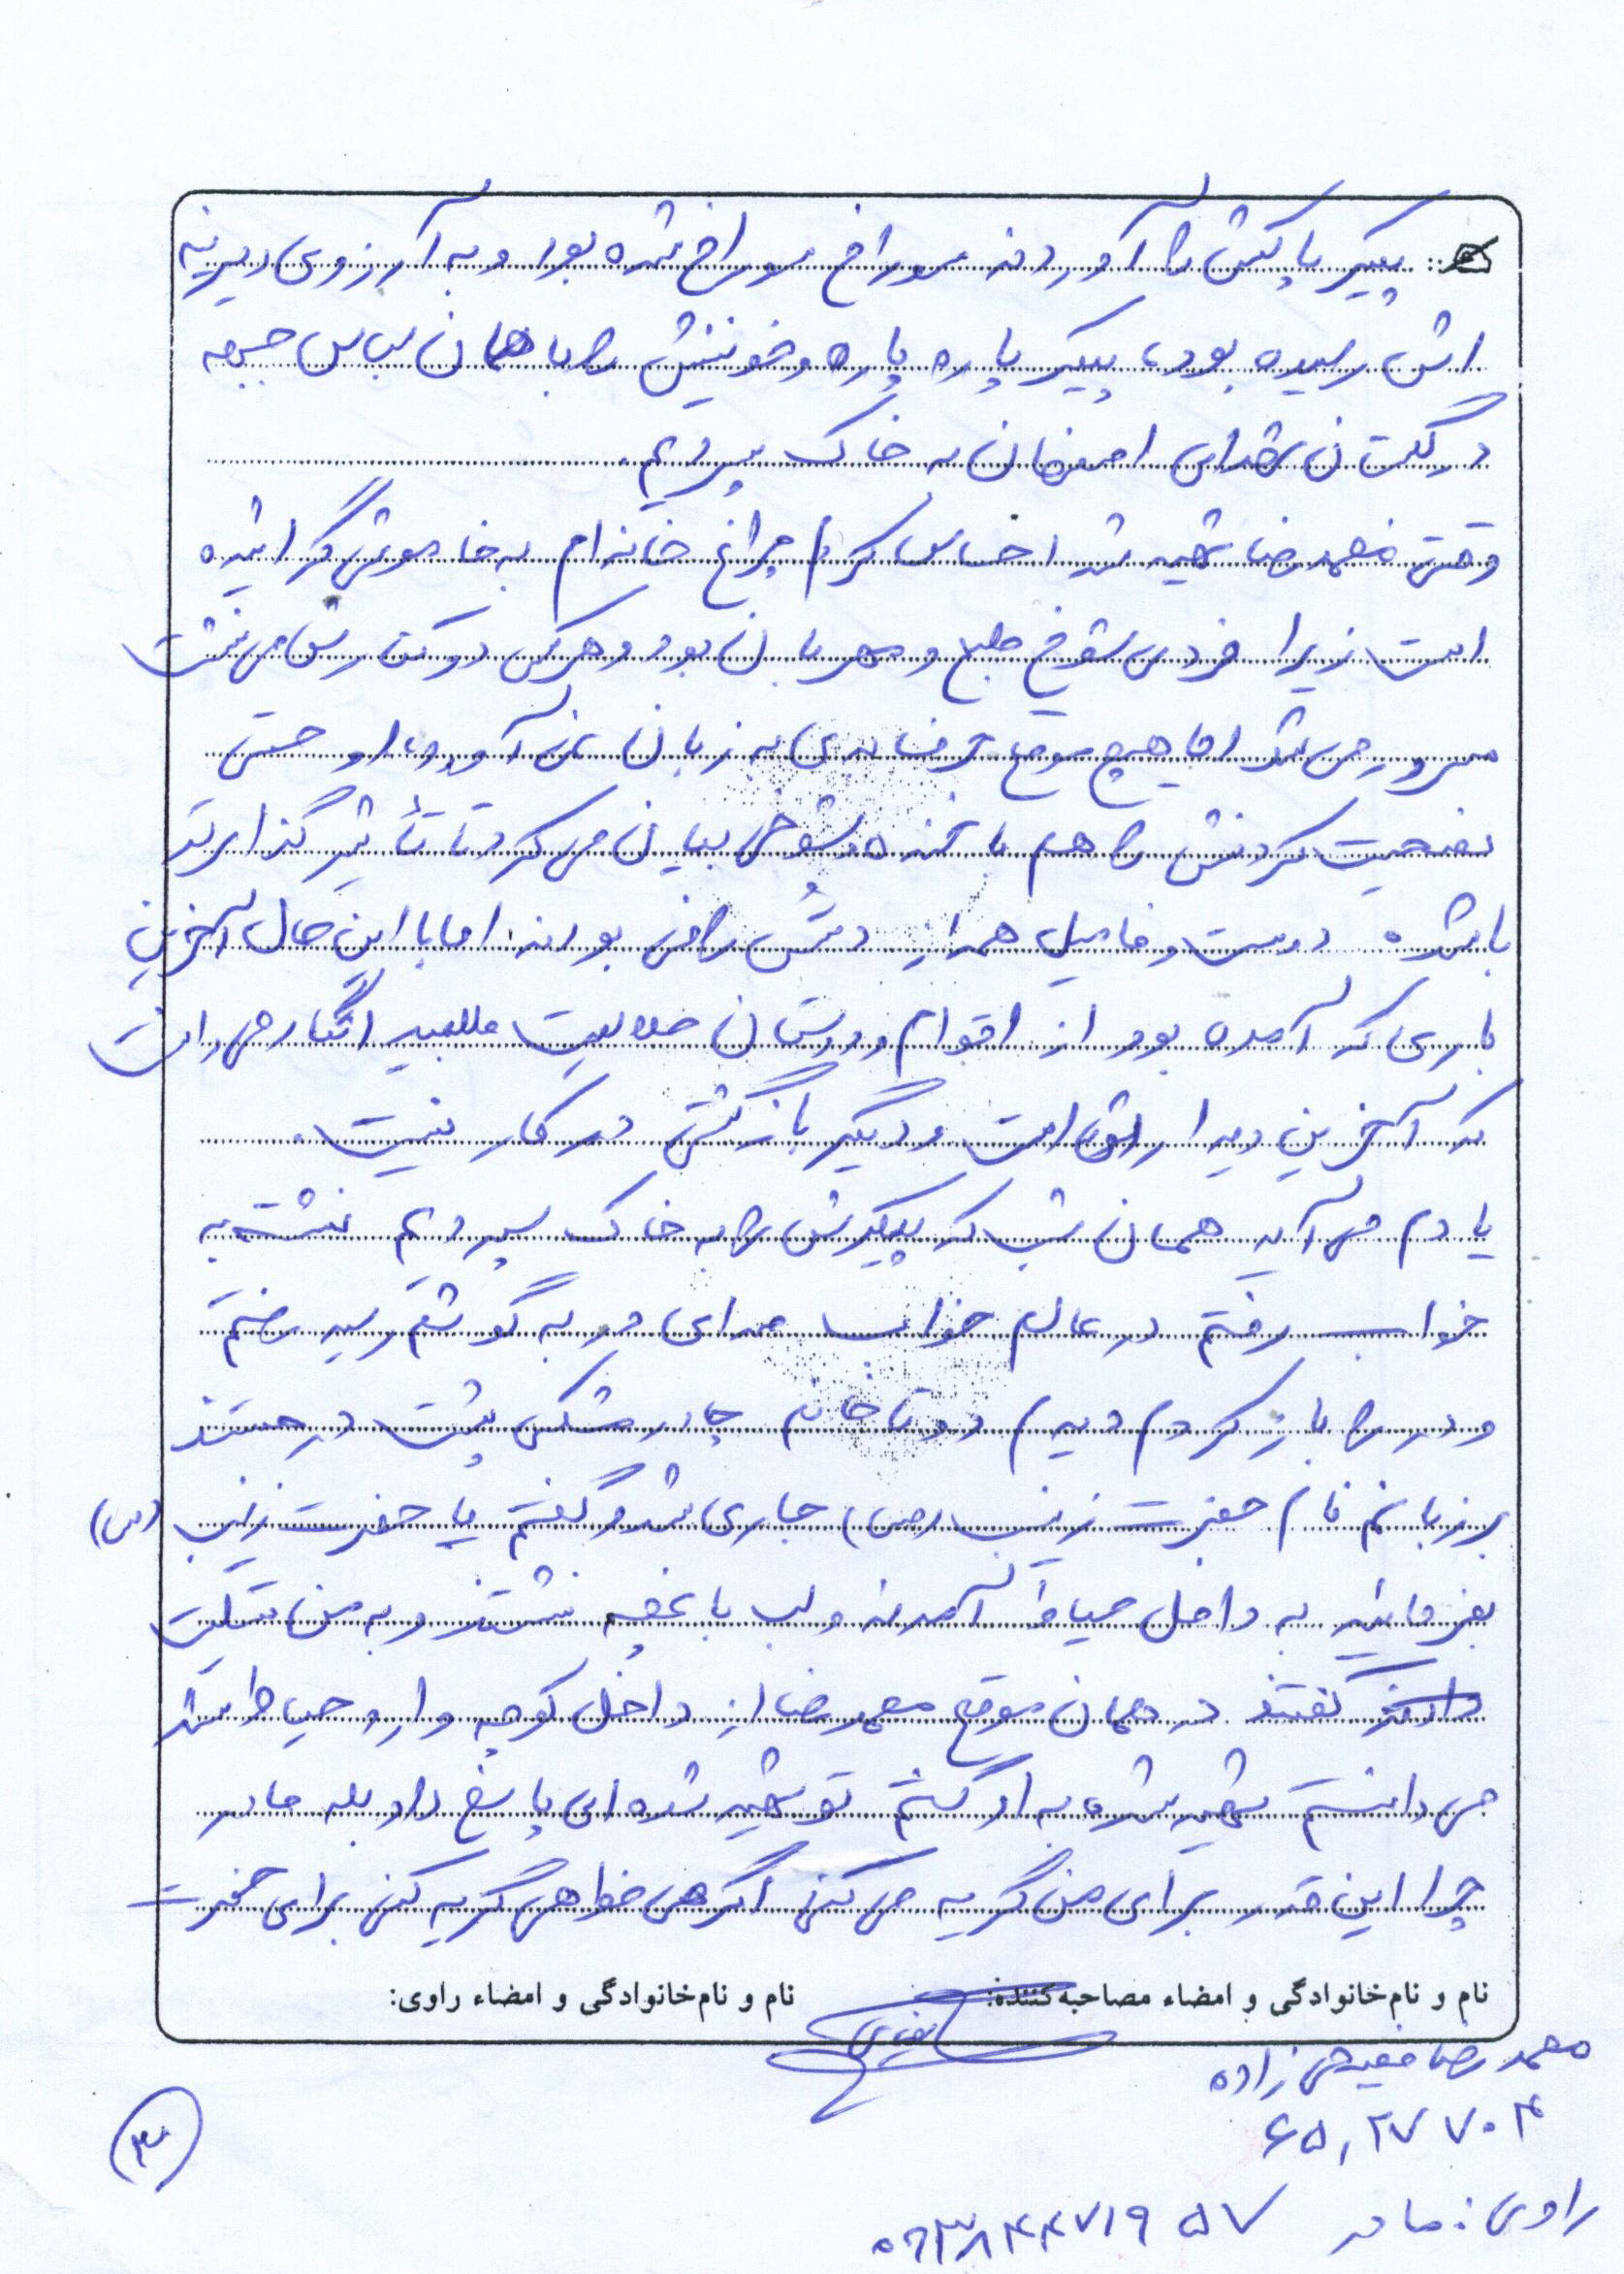 پیکر پاکش را آوردند سوراخ سوراخ شده بود و به آرزوی دیرینه
اش رسیده بود، پیکر پاره پاره و خونینش را با همان لباس جبهه
در گلستان شهدای اصفهان به خاک سپردیم.
وقتی محمدرضا شهید شد احساس کردم چراغ خانه‌ام به خاموشی گرائیده
است زیرا فردی شوخ طبع و مهربان بود و هرکس دو کنارش می نشست
مسرور می شد اما هیچ موقع حرف بدی به زبان نمی آورد، او حتی
نصیحت کردنش را هم با خنده و شوخی بیان می کرد تا تأثیر گذارتر
باشد، دوست و فامیل همه از دستش راضی بودند اما با این حال آخرین
باری که آمده بود از اقوام و دوستان حلالیت طلبید انگار می دانست
که آخرین دیدارشان است و دیگر بازگشتی در کار نیست.
یادم می آید همان شب که پیکرش را به خاک سپردیم نشسته به
خواب رفتم در عالم خواب صدای در به گوشم رسید رفتم
و در را باز کردم دیدم دو تا خانم چادر مشکی پشت در هستند
بر زبانم نام حضرت زینب (س) جاری شد و گفتم یا حضرت زینب (س)
بفرمائید به داخل حیاط آمدند و لب باغچه نشستند و به من تسلیت
گفتند در همان موقع محمدرضا از داخل کوچه وارد حیاط شد
می دانستم شهید شده به او گفتم تو شهید شده ای پاسخ داد بله مادر
چرا این قدر برای من گریه می کنی اگر می خواهی گریه کنی برای حضرت
نام و نام‌خانوادگی و امضاء مصاحبه‌کننده: نام و نام‌خانوادگی و امضاء راوی:
محمدرضا زاده
۶۵۰۲۷۷۰۴
۳
راوی: مادر